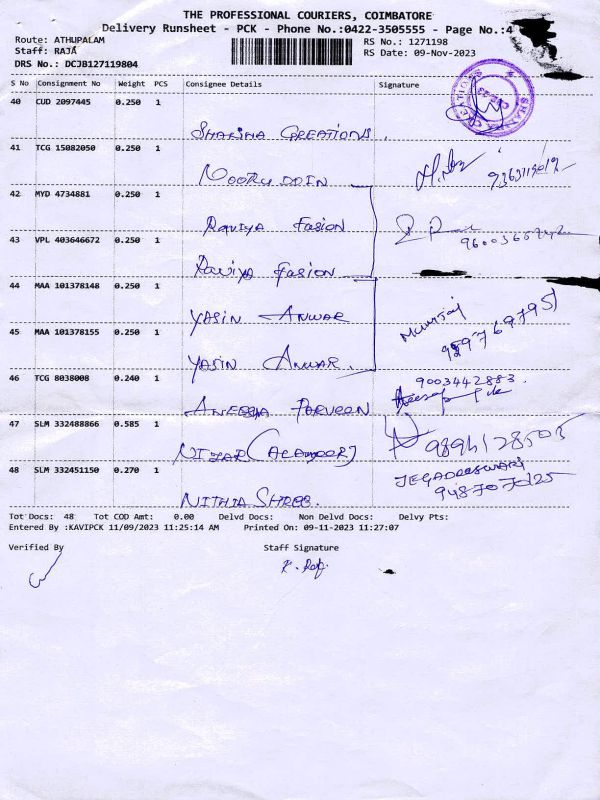 THE PROFESSIONAL COURIERS, COIMBATORE
Delivery Runsheet - PCK - Phone No.:0422-3505555 - Page No.:4
Route: ATHUPALAM
RS No.: 1271198
Staff: RAJA
RS Date: 09-Nov-2023
DRS No.: DCJB127119804
S No Consignment No Weight PCS Consignee Details Signature
40 CUD 2097445 0.250 1
SHAKIMA CREATIONS.
41 TCG 15082050 0.250 1
NOORUDDIN
42 MYD 4734881 0.250 1
Raviya Fasion
43 VPL 403646672 0.250 1
Raviya Fasion
44 MAA 101378148 0.250 1
YASIN ANWAR
45 MAA 101378155 0.250 1
YASIN ANWAR.
46 TCG 8038008 0.240 1
9003442883.
ANEESHA PARVEEN
47 SLM 332488866 0.585 1
48 SLM 332451150 0.270 1
NITHIA SHREE.
Tot Docs: 48 Tot COD Amt: 0.00 Delvd Docs: Non Delvd Docs: Delvy Pts:
Entered By :KAVIPCK 11/09/2023 11:25:14 AM Printed On: 09-11-2023 11:27:07
Verified By Staff Signature